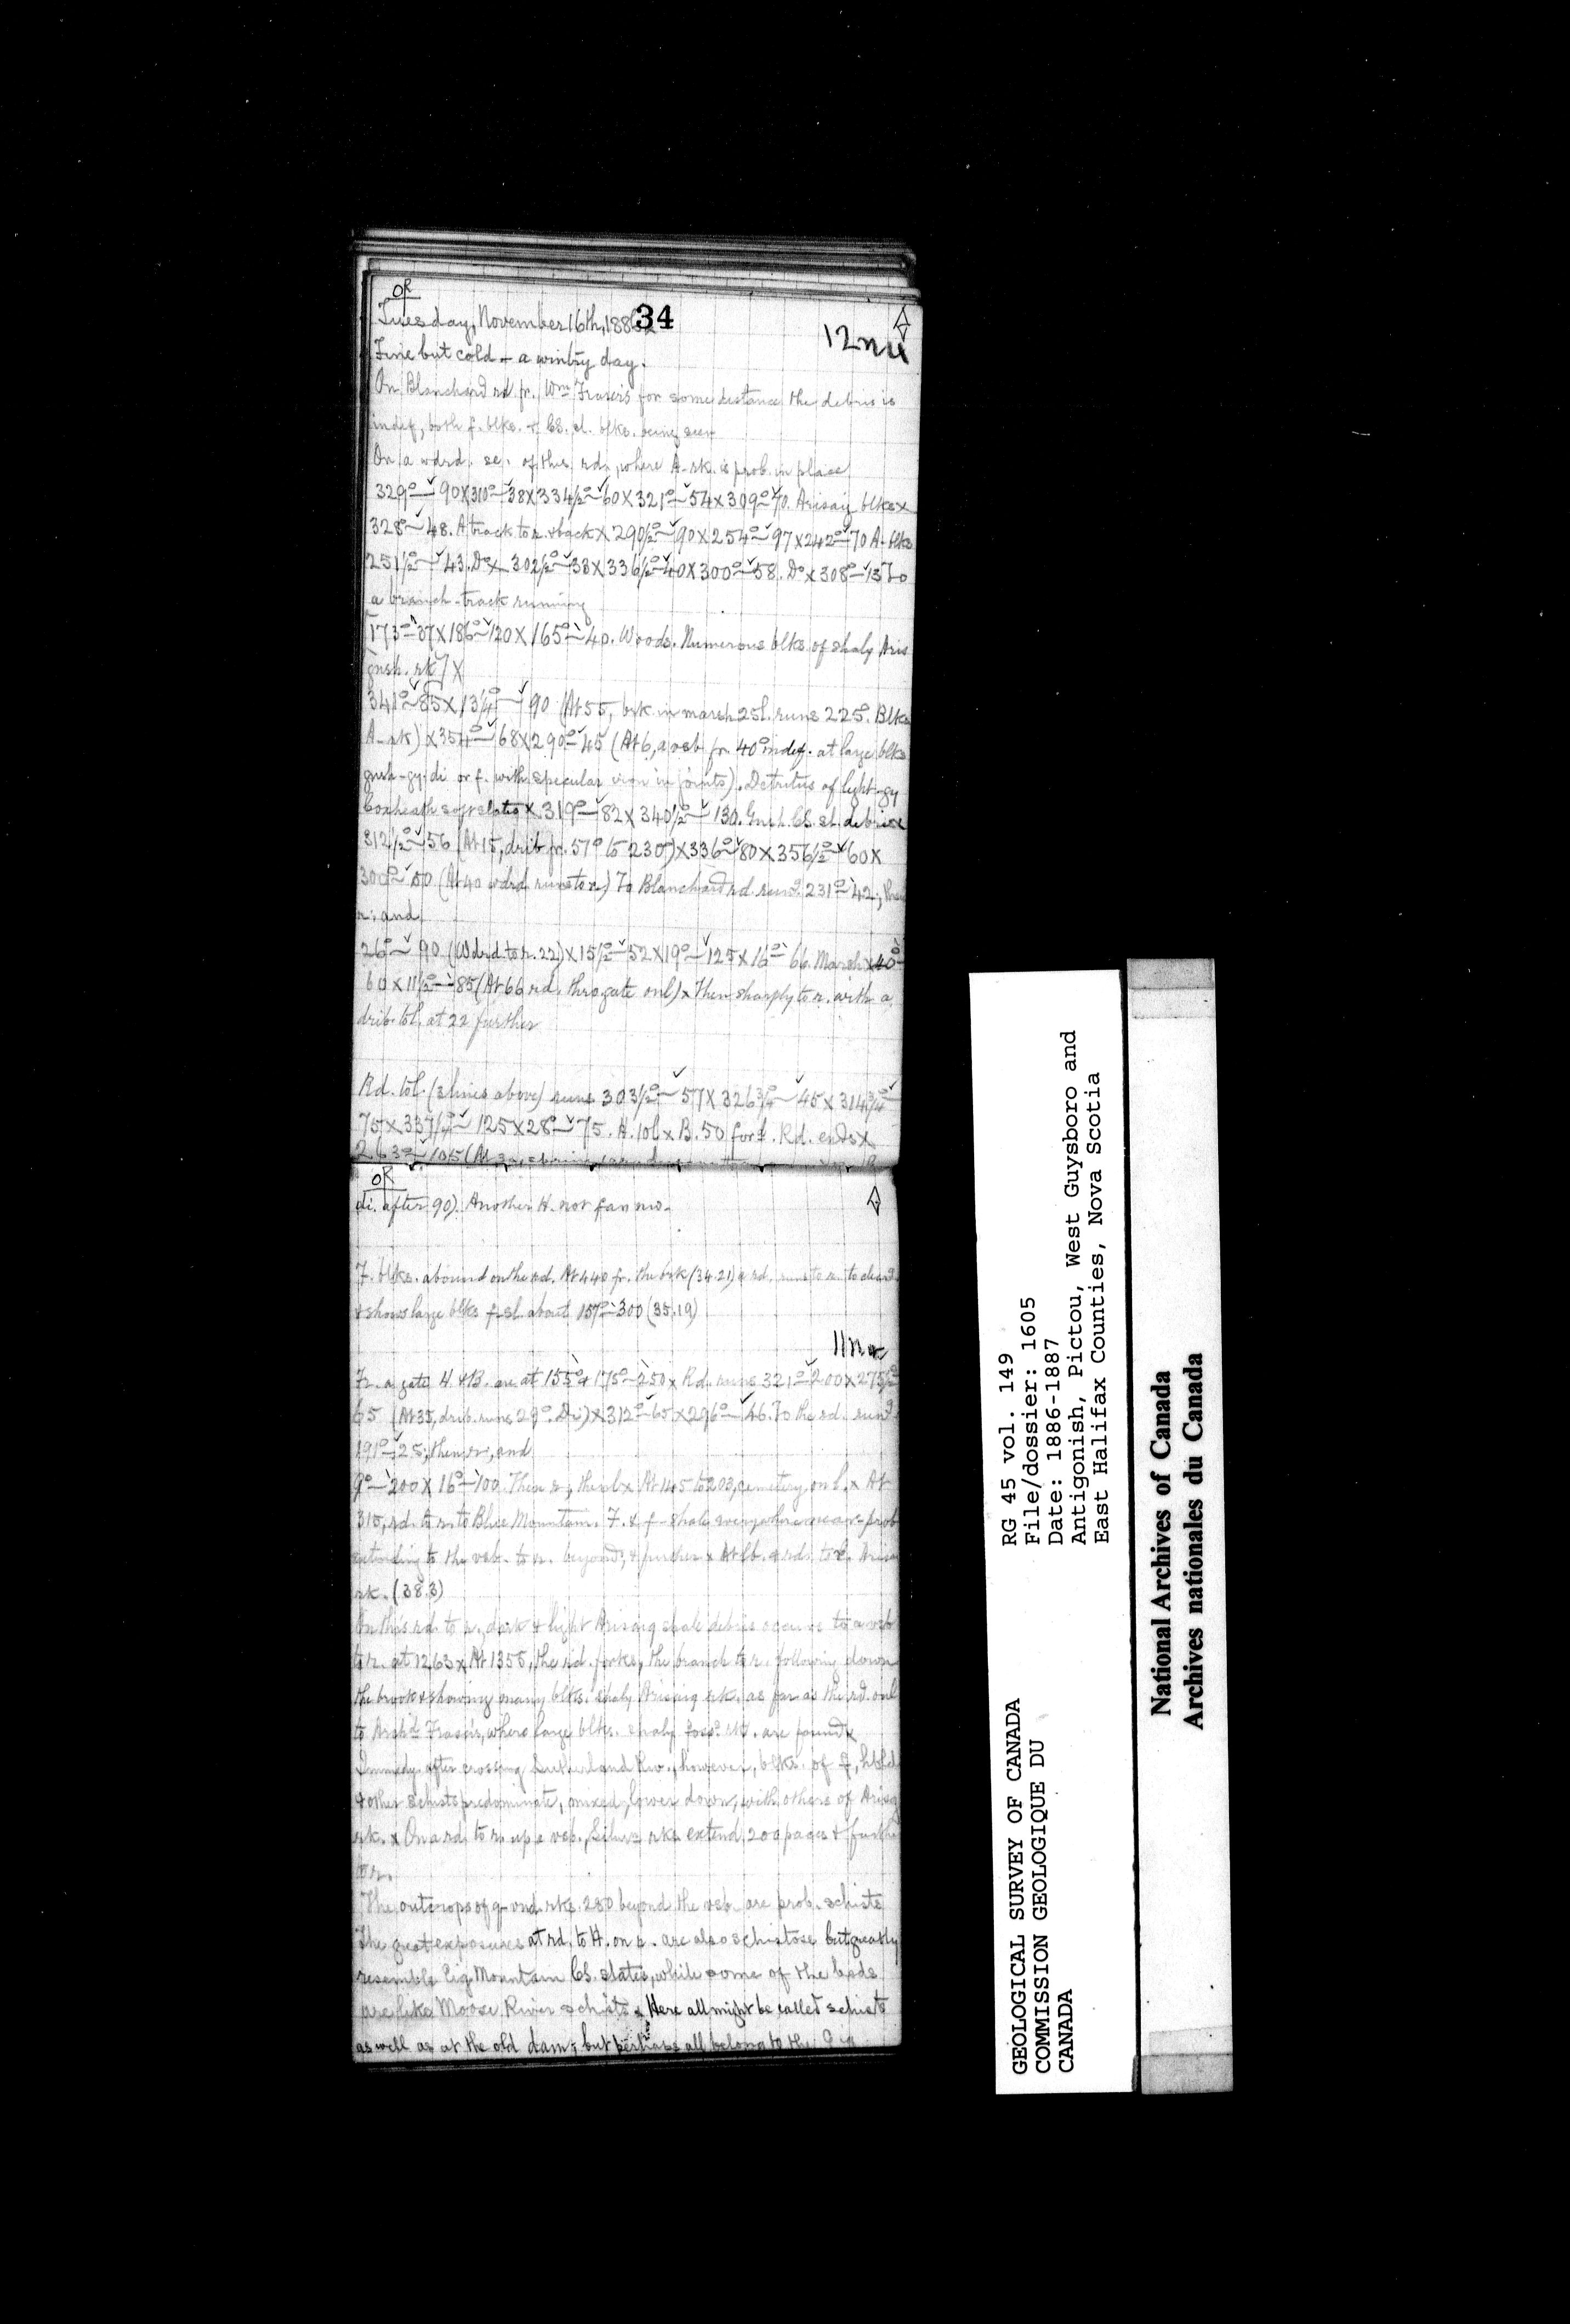 OR
34
Tuesday, November 16th, 1886
12 nu
Fine but cold - a wintry day.
On Blanchard rd fr. Wm Fraser's for some distance the debris is
indef, both f. blks. & CS. sl. blks. being seen
On a wdrd. se. of this rd., where A-rk. is prob. in place
329°–90 x 310°–38 x 334½°–60 x 321°–54 x 309°–70. Arisaig blks x
328°–48. A track to r. & back x 290½°–90 x 254°–97 x 242°–70 A-blks
251½°–43. Do x 302½°–33 x 336½°–40 x 300°–58. Do x 308°–13 To
a branch-track running
[173°–37 x 186°–120 x 165°–40. Woods. Numerous blks of shaly Aris
gnsh. rk] x
341°–85 x 13¼°–90 (At 55, brk in marsh 25 l. runs 225°. Blks
A-rk) x 354°–68 x 290°–45 (At 6, a vsb fr. 40° indef. at large blks
gnsh-gy. di or f. with specular iron in joints). Detritus of light-gy
Coxheath soft slates x 319°–82 x 340½°–130. Gnsh. CS. sl. debris x
312½°–56 (At 15, drib fr. 57° to 230°) x 336°–80 x 356½°–60 x
300°–50 (At 40 wdrd runs to r.) To Blanchard rd. rung. 231°–42; then
r. and
26°–90 (Wdrd to r. 22) x 15½°–52 x 19°–125 x 16°–66. Marsh x 40°–
60 x 11½°–85 (At 66 rd. thro gate on l) x Then sharply to r. with a
drib. to l. at 22 further
Rd. to l. (3 lines above) runs 303½°–57 x 326¾°–45 x 314¾°–
75 x 337½°–125 x 28°–75. H. 10 l x B. 50 for l. Rd. ends x
263°–105 (At 30,
OR
di. after 90). Another H. not far nw.
F. blks. abound on the rd. At 440 fr. the brk (34.21) a rd. runs to r. to
& shows large blks f-sl about 157°–300 (35.19)
11 n
Fr. a gate H. & B. are at 155° & 175°–250 x Rd. runs 321°–200 x 275½°
65 (At 35, drib. runs 29°. Di) x 312°–65 x 296°–46. To the rd. rung.
191°–25; then r., and
9°–200 x 16°–100. Then r., then l x At 145 to 203, cemetery on l. x At
315, rd. to r. to Blue Mountain. F. & f-shale everywhere near-prob
extending to the vsb. to r. beyond, & further x At rds. to Arisaig
rk. (38.3)
On this rd. to r., dark & light Arisaig shale debris occurs to a vsb
to r. at 1263 x At 1355, the rd. forks, the branch to r. following down
the brook & showing many blks. shaly Arisaig rk. as far as the rd. on l
to Archd Frasers, where large blks. shaly foss. rk. are found x
Immedy. after crossing Sutherland Riv., however, blks. of
& other schists predominate, mixed, lower down, with others of Arisaig
rk. x On a rd. to r. up a vsb., Silurn rks extend 200 paces & further
to r.
The outcrops of rks. 280 beyond the vsb. are prob. schists
The great exposures at rd. to H. on r. are also schistose but greatly
resemble Eig. Mountain CS. slates, while some of the beds
are like Moose River schists x Here all might be called schists
as well as at the old dam; but perhaps all belong to the
RG 45 vol. 149
File/dossier: 1605
Date: 1886-1887
Antigonish, Pictou, West Guysboro and
East Halifax Counties, Nova Scotia
GEOLOGICAL SURVEY OF CANADA
COMMISSION GEOLOGIQUE DU
CANADA
National Archives of Canada
Archives nationales du Canada